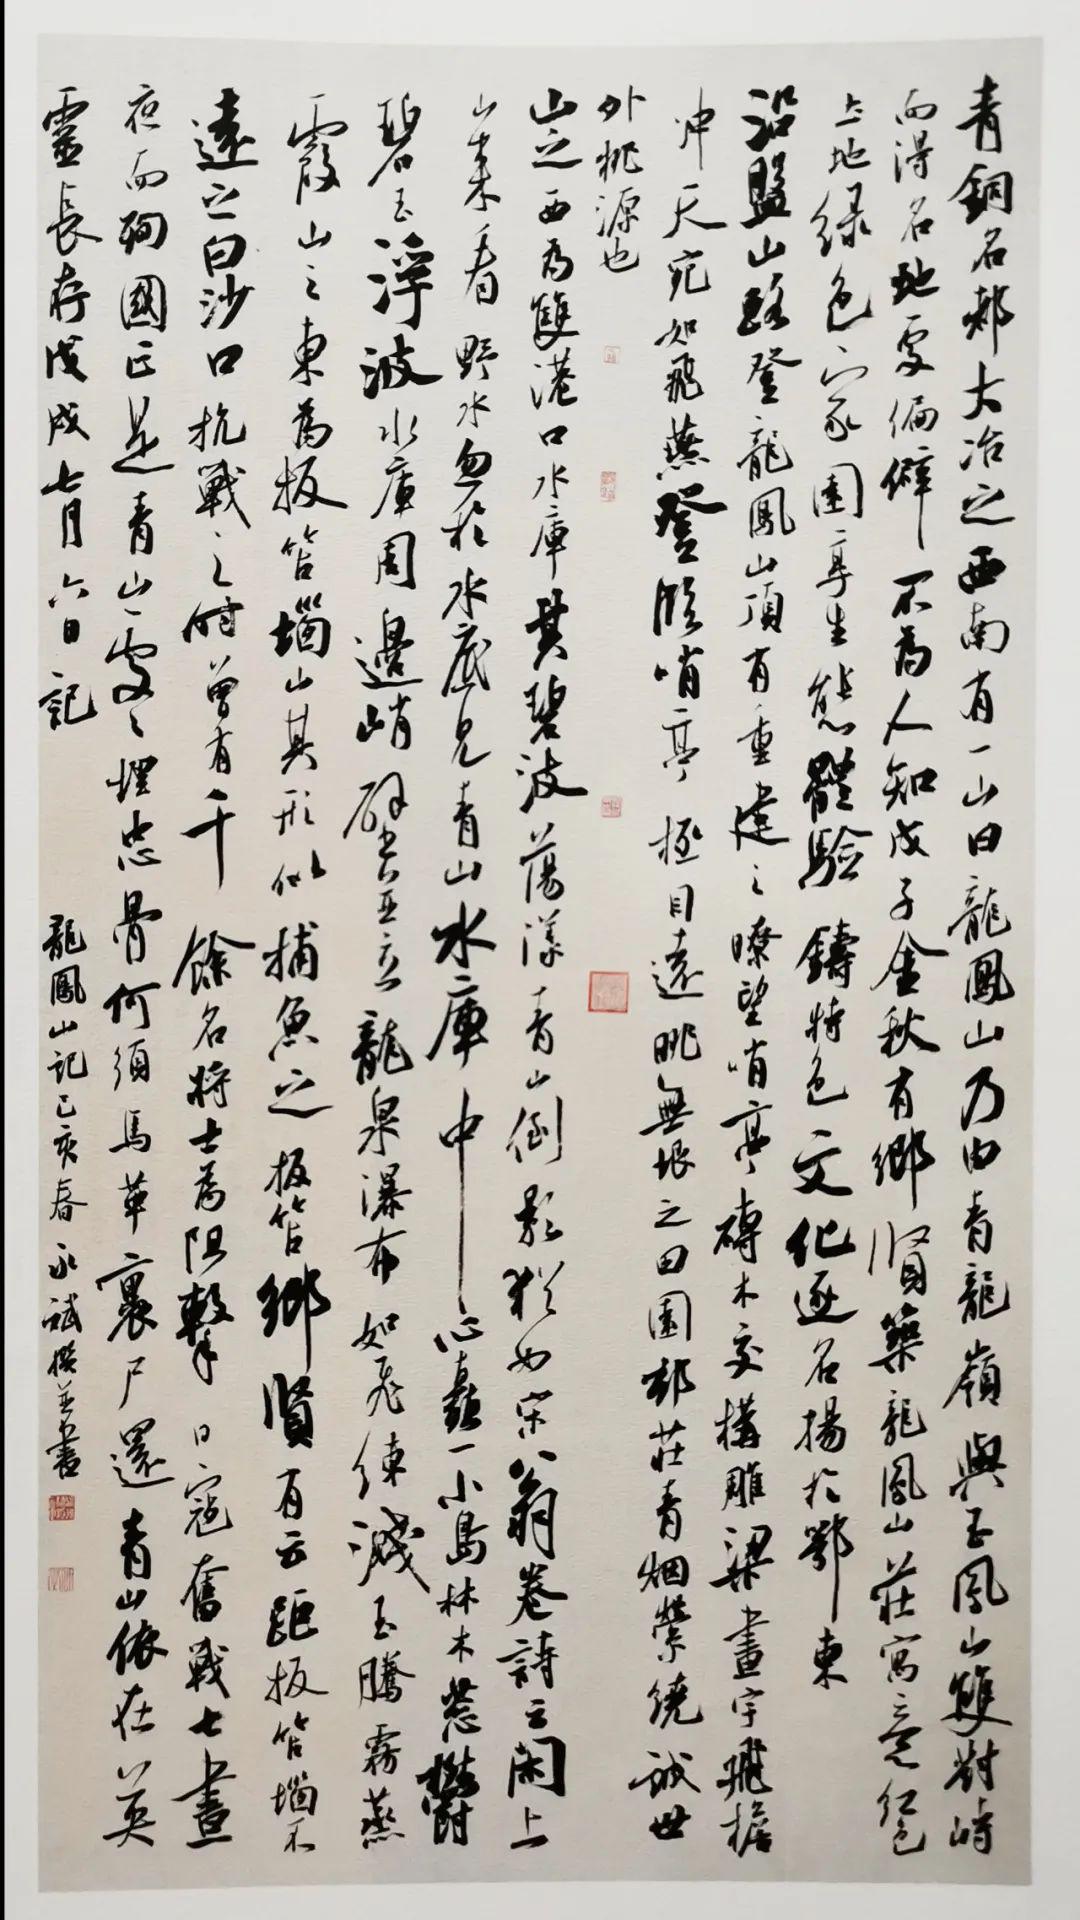 青銅名鄉大冶之西南有一山曰龍鳳山乃由青龍嶺與玉鳳山雙對峙
而得名地處偏僻不為人知戊子金秋有鄉賢築龍鳳山莊寓意紅色
土地綠色家園享生態體驗鑄特色文化逐名揚於鄂東
沿盤山路登龍鳳山頂有重建之瞭望哨亭磚木交構雕梁畫宇飛檐
冲天宛如飛燕登臨哨亭極目遠眺無垠之田園邨莊青烟縈繞誠世
外桃源也
山之西為雙港口水庫其碧波蕩漾青山倒影猶如宋翁卷詩云閑上
山來看野水忽於水底見青山水庫中心矗一小島林木蔥鬱
碧玉浮波水庫周邊峭壁直立龍泉瀑布如飛練濺玉騰霧蒸
霞山之東為板笞堖山其形似捕魚之板笞鄉賢有云距板笞堖不
遠之白沙口抗戰之時曾有千餘名將士為阻擊日寇奮戰七晝
夜而殉國正是青山處處埋忠骨何須馬革裹尸還青山依在英
靈長存戊戌七月六日記
龍鳳山記己亥春永斌撰並書